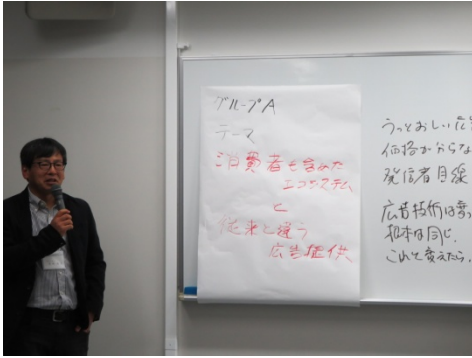 グループA
テーマ
消費者も含めた
エコシステム
と
従来と違う
広告提供
うっとおしい広
価格がからな
発信者目線
広告技術は
根本は同じ.
これで変えたら.